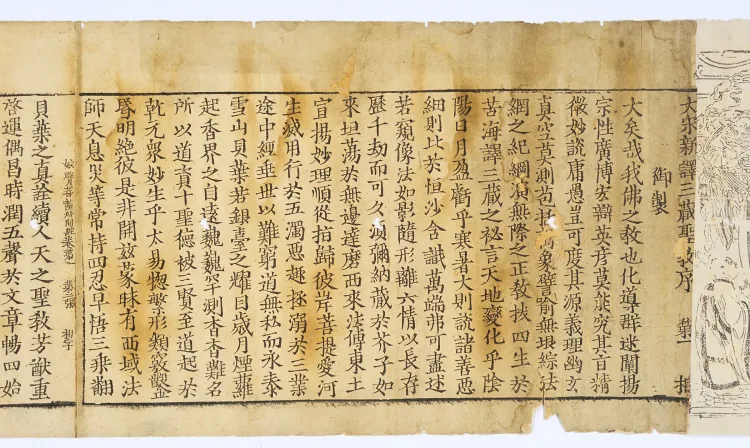 大宋新譯三藏聖教序
御製
大矣哉我佛之教也化導群迷闡揚
宗性廣博宏辯英彥莫能究其旨精
微妙說庸愚豈可度其源義理幽玄
真空莫測苞括萬象譬喻無垠綜法
網之紀綱演無際之正教拔四生於
苦海譯三藏之祕言天地變化乎陰
陽日月盈虧乎寒暑大則說諸善惡
細則比於恒沙含識萬端弗可盡述
若窺像法如影隨形離六情以長存
歷千劫而可久須彌納藏於芥子如
來坦蕩於無邊達磨西來法傳東土
宣揚妙理順從指歸彼岸菩提愛河
生滅用行於五濁惡趣拯溺於三業
途中經垂世以難窮道無私而永泰
雪山貝葉若銀臺之耀目歲月煙蘿
起香界之自遠巍巍罕測杳杳難名
所以道資十聖德被三賢至道起於
乾元眾妙生乎太易揔繁形類竅鑿
昏明絕彼是非開茲蒙昧有西域法
師天息災等常持四忍早悟三乘翻
妙臂菩薩所問經卷第一 第二張 初字
貝葉之真詮續人天之聖教芳猷重
啓運偶昌時潤五聲於文章暢四始